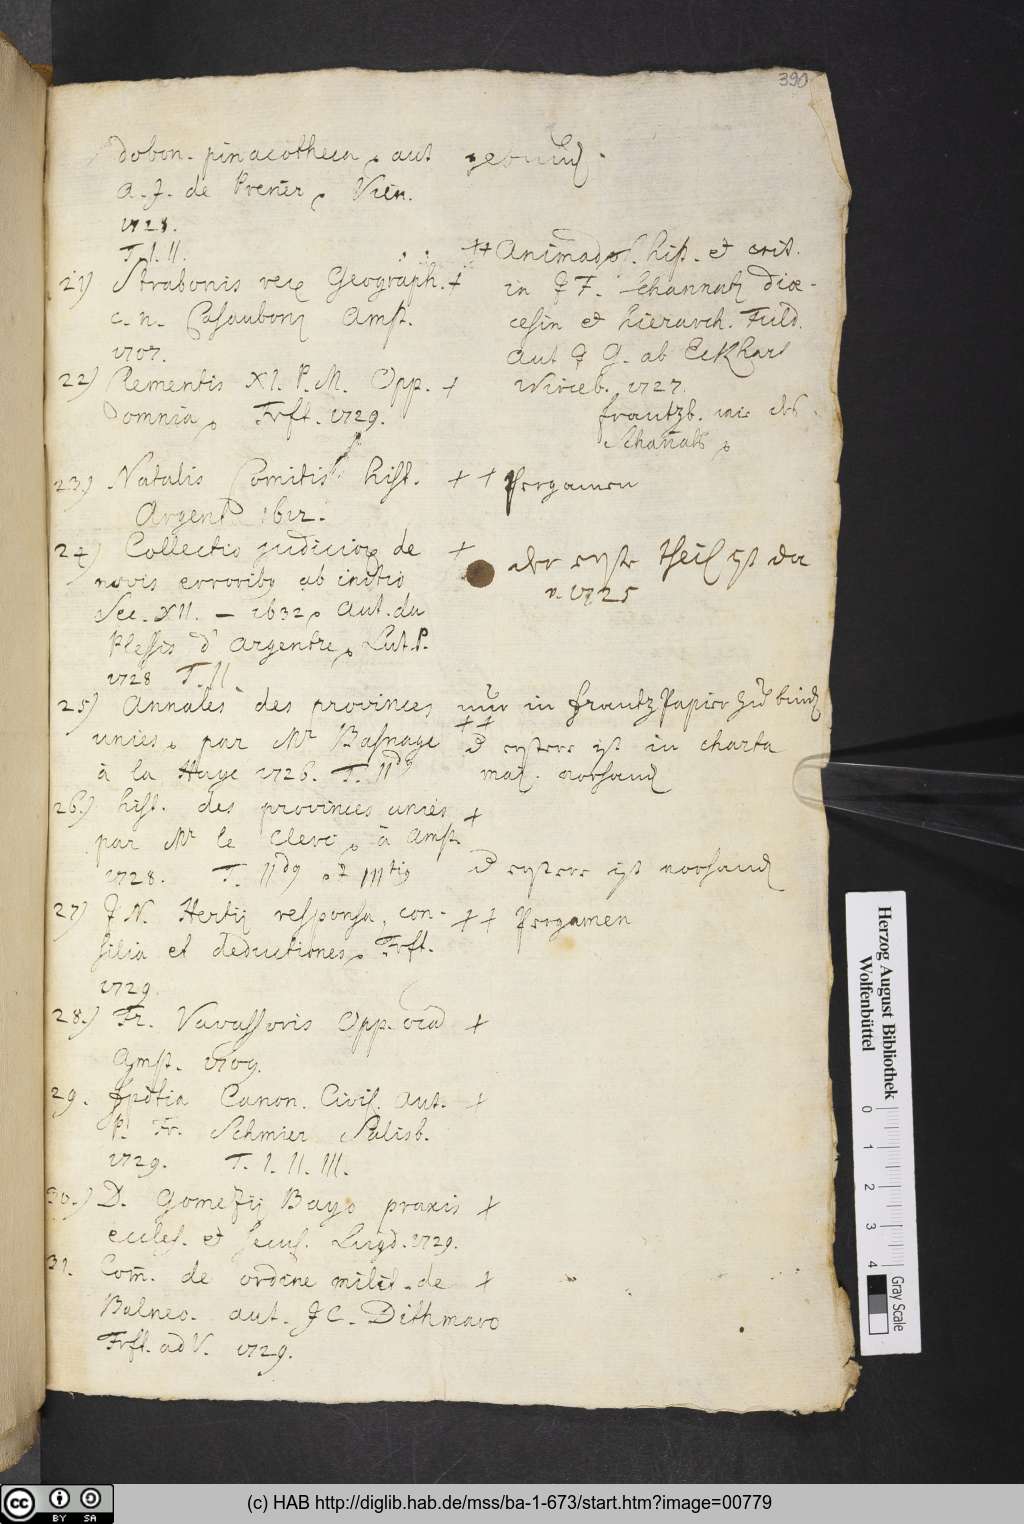 390
dobon. pinacotheca, aut
A. J. de Prenēr, Vien.
1728.
T. I. II.
21) Strabonis rer. Geograph. +
c. n. Casauboni Amst.
1707.
22) Clementis XI. P. M. Opp. +
omnia, Frft. 1729.
23) Natalis Comitis hist. +
Argent. 1612.
24) Collectio judicior. de +
novis erroribq ab initio
Sec. XII. – 1632, Aut. du
Plessis d'Argentre, Lut. P.
1728 T. II
25) Annales des provinces
uniës, par Mr Basnage
à la Haye 1726. T. IIdq
26.) hist. des provinces uniës +
par Mr le Clerc, à Amst.
1728. T. IIdq , IIItiq
27) J. N. Hertij responsa, con- +
silia et deductiones, Frft.
1729.
28.) Fr. Vavassoris Opp. +
Amst. 1709.
29. Canon. Civil. Aut. +
P. Fr. Schmier Salisb.
1729. T. I. II. III.
30.) D. Gomezij Bayo praxis +
eccles. et secul. Lugd. 1729.
31. Com̄. de ordine milit. de +
Balneo. aut. J C. Dithmaro
Frft. ad V. 1729.
++ Animad. hist. et crit.
in J F. Schannati diœ-
cesin et hierarch. Fuld.
Aut J G. ab Eckhart
Wirceb. 1727.
frantzb. wie des
Schañats,
+ Pergamen
der erste theil ist da
v. 1725
nur in frantz Papier zu
++
erstere ist in charta
maj. vorhand
erstere ist vorhand
+ Pergamen
Herzog August Bibliothek
Wolfenbüttel
0 1 2 3 4
Gray Scale
cc BY SA
(c) HAB http://diglib.hab.de/mss/ba-1-673/start.htm?image=00779